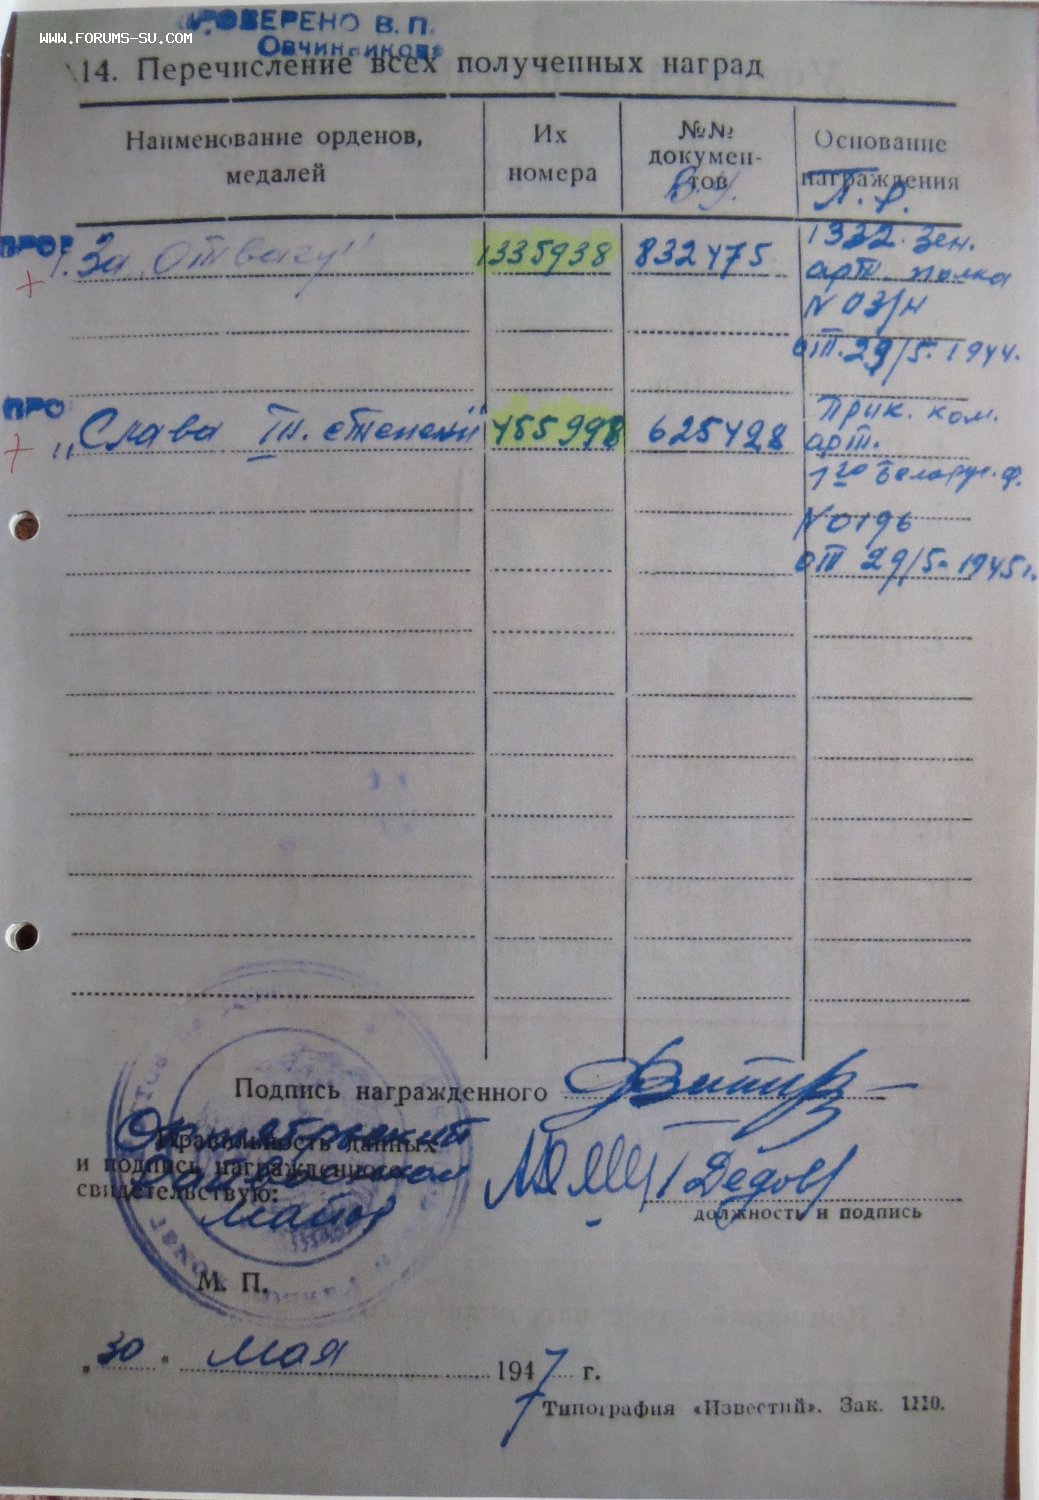 ПРОВЕРЕНО В. П.
Овчинникова
WWW.FORUMS-SU.COM
14. Перечисление всех полученных наград
Наименование орденов, медалей
Их номера
№№ документов
Основание награждения
В.У.
П. Р.
ПРОВ
1. „За отвагу" 1335938 832475 1332. зен.
арт. полка
N 03/н
от. 29/5. 1944.
ПРО
„Слава III. степени" 455998 625428 Прик. ком.
арт.
1го Беларус. ф.
N 0196
от 29/5- 1945г.
Подпись награжденного
Октябрьский
Правильность данных
и подпись награжденного
Райвоенком
свидетельствую:
майор
Дедов
должность и подпись
М. П.
„30" мая 1947 г.
Типография «Известий». Зак. 1120.